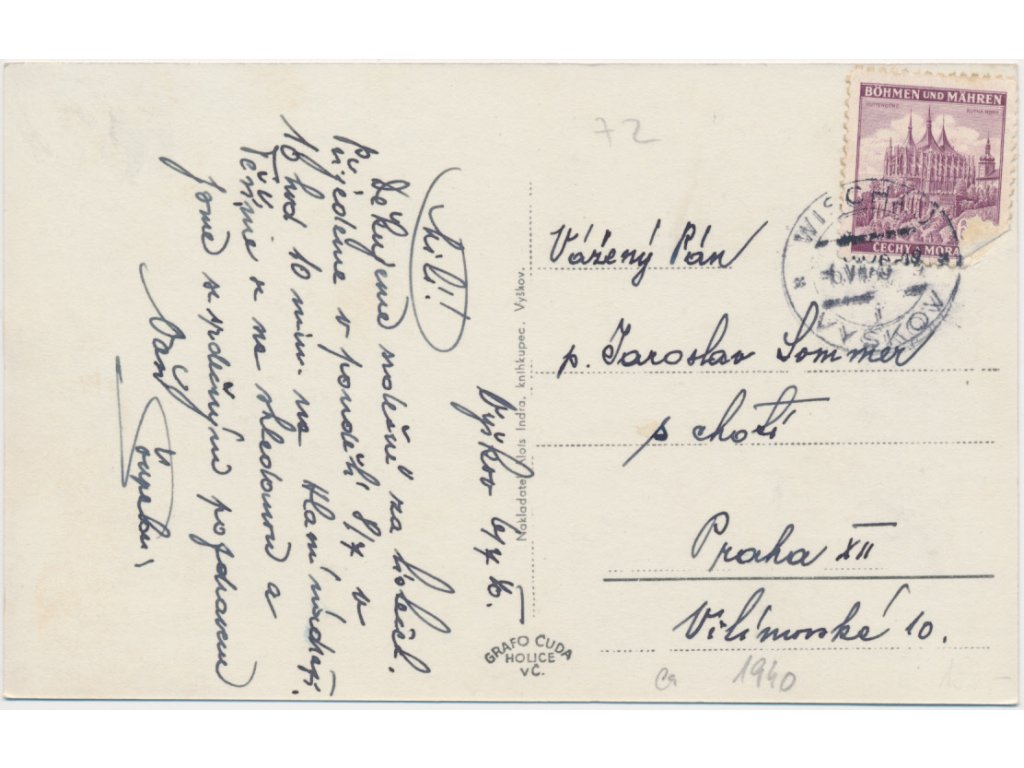 72
BÖHMEN UND MÄHREN
ČECHY A MORA
WISCHAU
VYŠKOV
Vážený Pán
p. Jaroslav Sommer
s chotí
Praha XII
Vilímovská 10.
Vyškov 6/7 40.
Milí!
Děkujeme srdečně za lísteček.
Přijedeme v pondělí 8/7 v
16 hod 10 min. na Hlavní nádraží.
Těšíme se na shledanou a
jsme se srdečným pozdravem
Vaši
Nakladatel Alois Indra, knihkupec, Vyškov.
GRAFO ČUDA
HOLICE
VČ.
1940